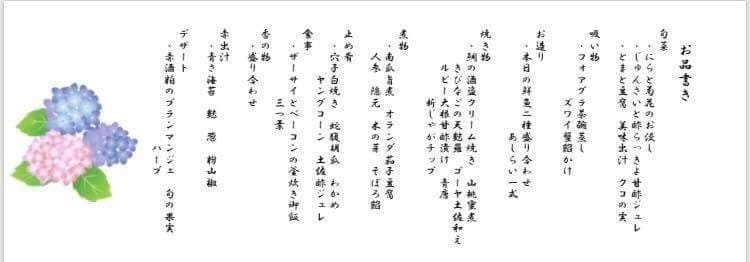 お品書き
旬菜
・にらと菊花のお浸し
・じゅんさいと酢らっきょ甘酢ジュレ
・とまと豆腐 美味出汁 クコの実
吸い物
・フォアグラ茶碗蒸し
ズワイ蟹餡かけ
お造り
・本日の鮮魚二種盛り合わせ
あしらい一式
焼き物
・鯛の酒盗クリーム焼き 山桃蜜煮
きびなごの天麩羅 ゴーヤ土佐和え
ルビー大根甘酢漬け 青唐
新じゃがチップ
煮物
・南瓜旨煮 オランダ茄子豆腐
人参 隠元 木の芽 そぼろ餡
止め肴
・穴子白焼き 蛇腹胡瓜 わかめ
ヤングコーン 土佐酢ジュレ
食事
・ザーサイとベーコンの釜炊き御飯
三つ葉
香の物
・盛り合わせ
赤出汁
・青さ海苔 麩 葱 粉山椒
デザート
・赤酒粕のブランマンジェ 旬の果実
ハーブ